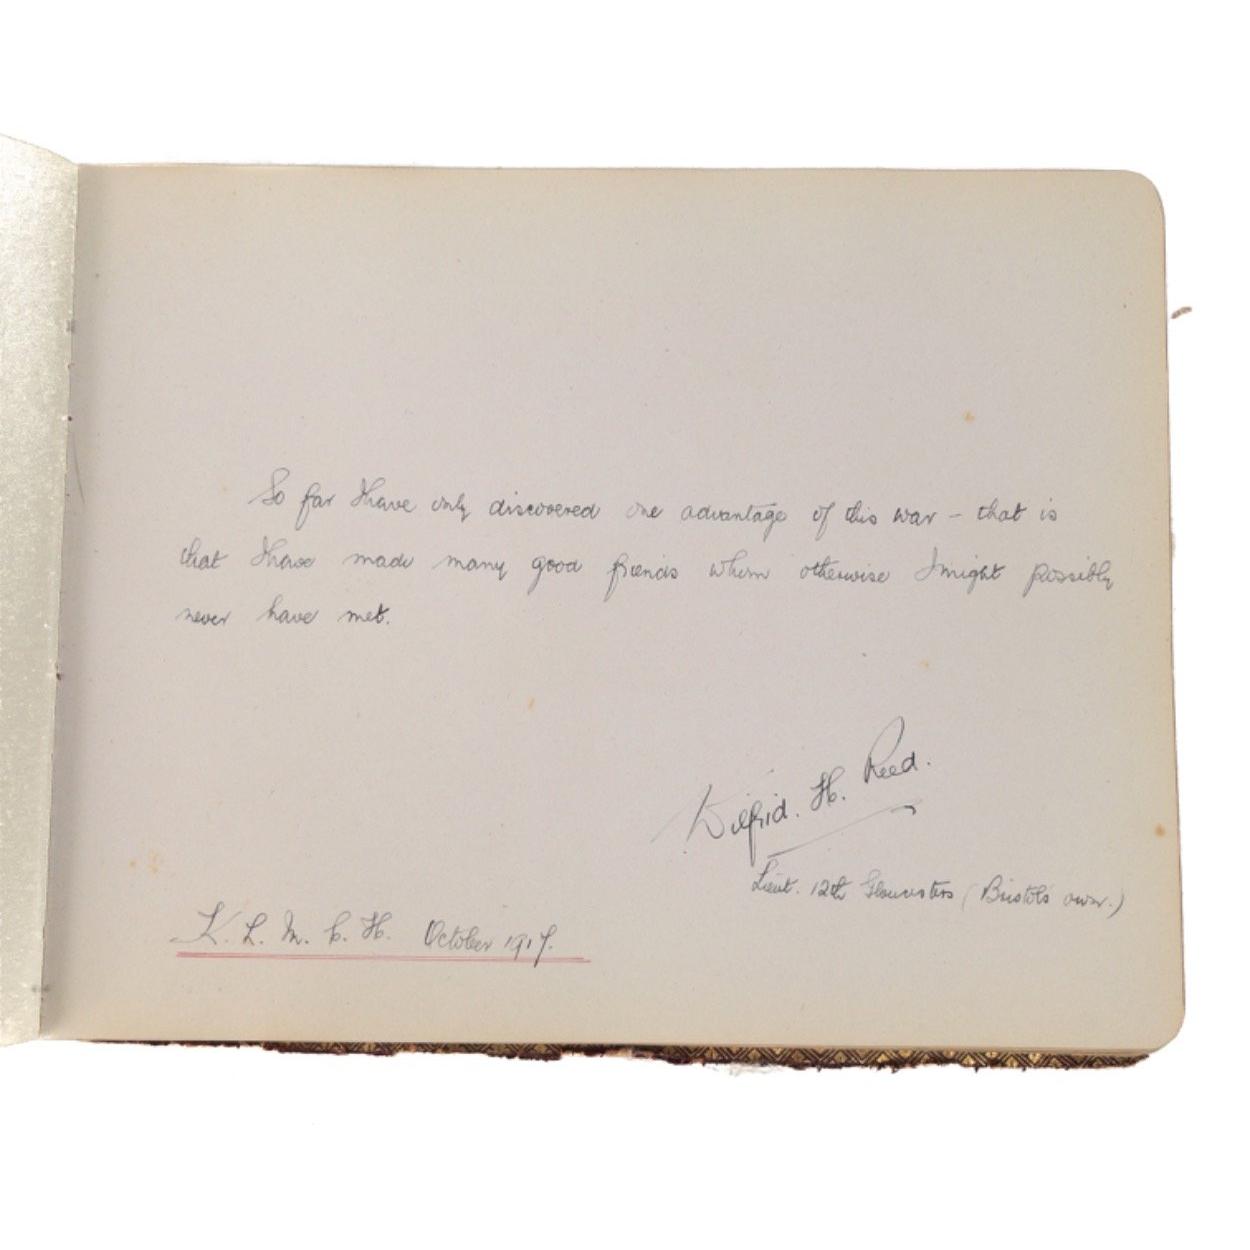 So far I have only discovered one advantage of this war - that is
that I have made many good friends whom otherwise I might possibly
never have met.
Wilfrid. H. Reed.
Lieut. 12th Gloucesters (Bristol's own.)
K. L. M. C. H. October 1917.